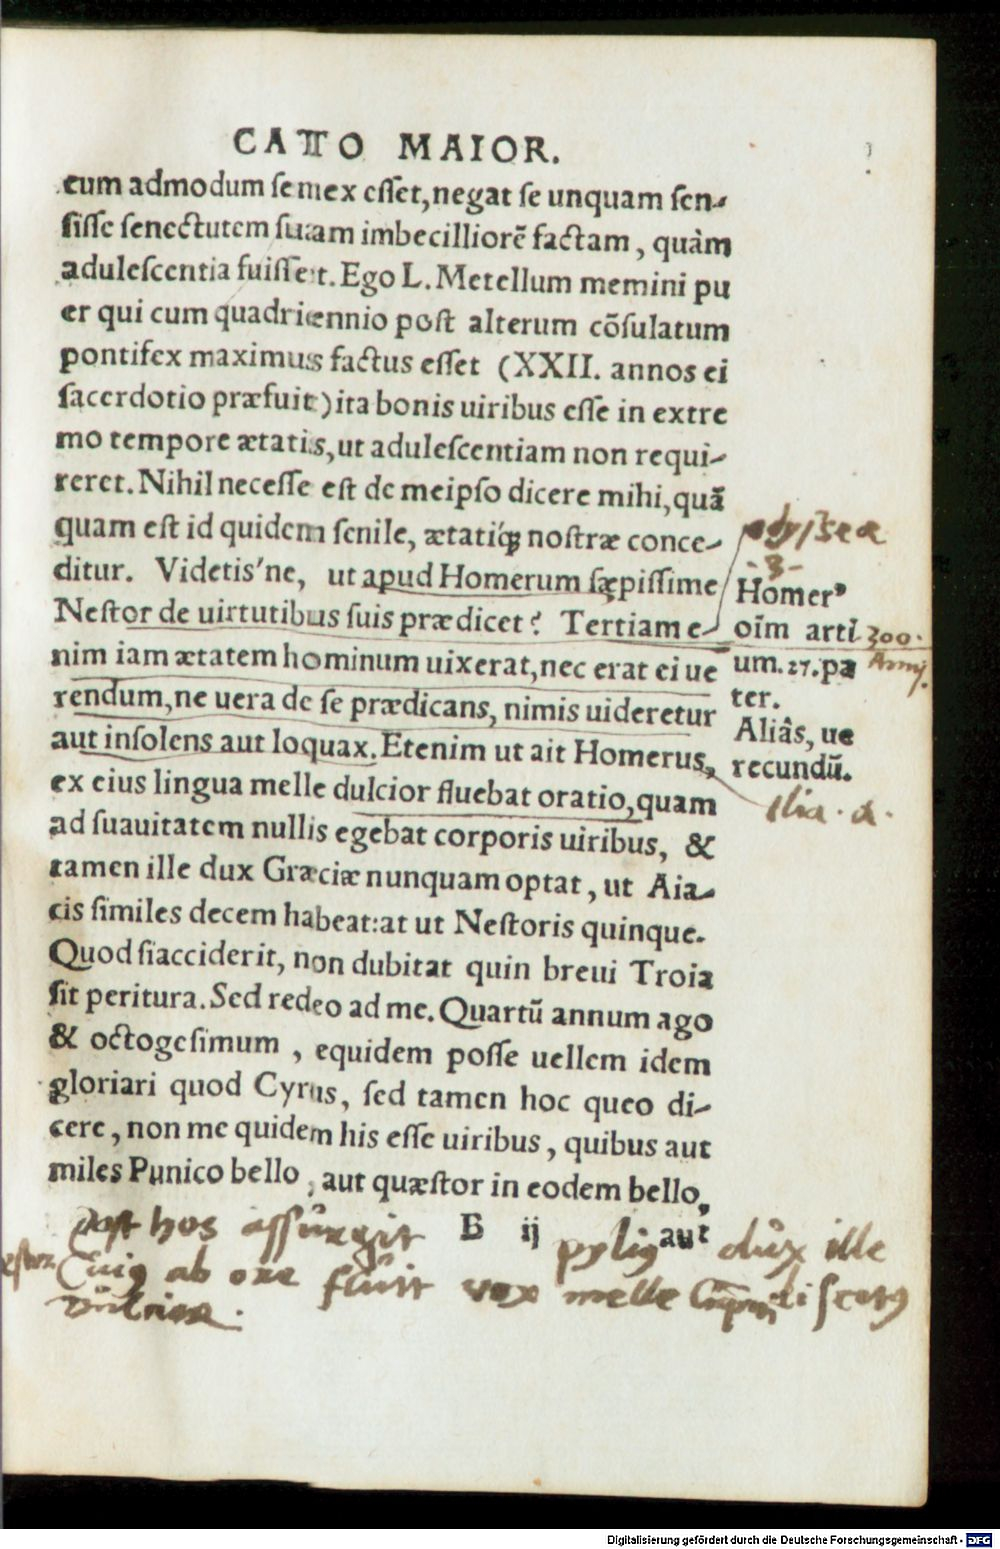 CATTO MAIOR.
cum admodum senex esset, negat se unquam sen-
sisse senectutem suam imbecilliorẽ factam, quàm
adulescentia fuisset. Ego L. Metellum memini pu
er qui cum quadriennio post alterum cõsulatum
pontifex maximus factus esset (XXII. annos ei
sacerdotio præfuit) ita bonis uiribus esse in extre
mo tempore ætatis, ut adulescentiam non requi-
reret. Nihil necesse est de meipso dicere mihi, quã
quam est id quidem senile, ætatiq́ꝫ nostræ conce-
ditur. Videtis'ne, ut apud Homerum sæpissime
Nestor de uirtutibus suis prædicet? Tertiam e-
nim iam ætatem hominum uixerat, nec erat ei ue
rendum, ne uera de se prædicans, nimis uideretur
aut insolens aut loquax. Etenim ut ait Homerus,
ex eius lingua melle dulcior fluebat oratio, quam
ad suauitatem nullis egebat corporis uiribus, &
tamen ille dux Græciæ nunquam optat, ut Aia-
cis similes decem habeat: at ut Nestoris quinque.
Quod si acciderit, non dubitat quin breui Troia
sit peritura. Sed redeo ad me. Quartũ annum ago
& octogesimum, equidem posse uellem idem
gloriari quod Cyrus, sed tamen hoc queo di-
cere, non me quidem his esse uiribus, quibus aut
miles Punico bello, aut quæstor in eodem bello,
B ij aut
odyssea
-3-
Homerꝰ
oĩm arti
300.
um. 27. pa
ter.
Aliâs, ue
recundũ.
Ilia. α.
Post hos assurgit pyliꝰ dux ille
Cuiꝰ ab ore fluit vox melle disertꝰ
dulcior.